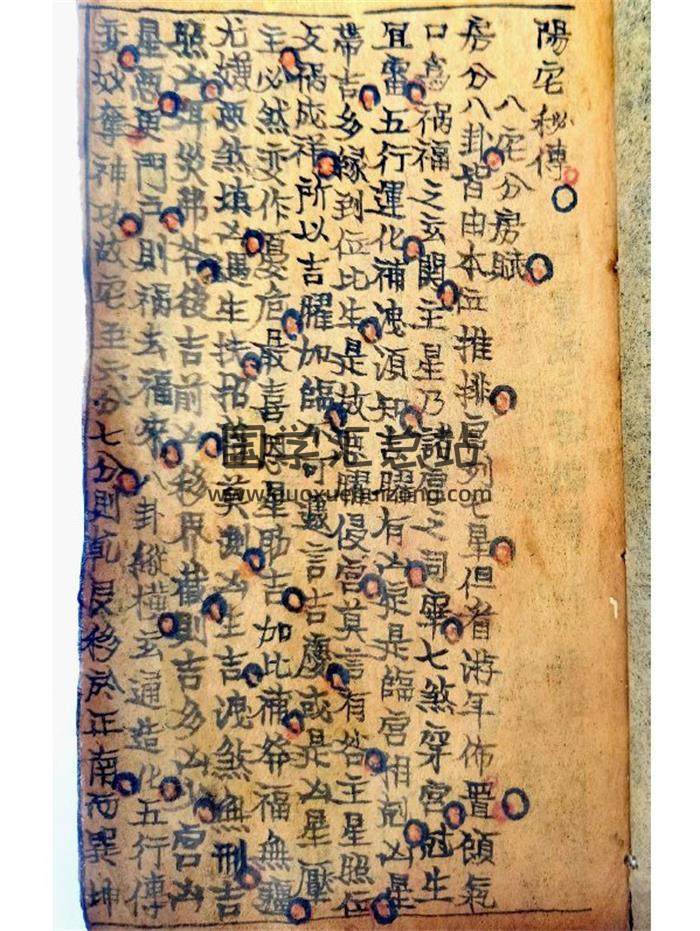 陽宅秘傳
八宅分房賦
房分八卦皆由本位推排宮列七星但看游年佈置傾氣
口為禍福之玄關主星乃諸宮之司畢七煞穿宮冠生
宜當五行運化補洩須知吉曜有凶定是臨宮相剋凶星
帶吉多緣到位比生是故惡曜侵宮莫言有咎主星照位
反禍成祥所以吉曜加臨 可遽言吉慶或是凶星壓
主必然变作憂危最喜恩星助吉加比補爺福無疆
尤嫌惡煞填凶遇生扶招 莫測凶生吉洩煞無刑吉
照凶 災弗咎後吉前凶移 則吉多凶 宮凶
星惡更門戶則禍去福來八卦縱橫玄通造化五行傳
变妙奪神功故宅至六分七分則乾艮移於正南而巽坤
国学汇总站
www.guoxuehuizong.com